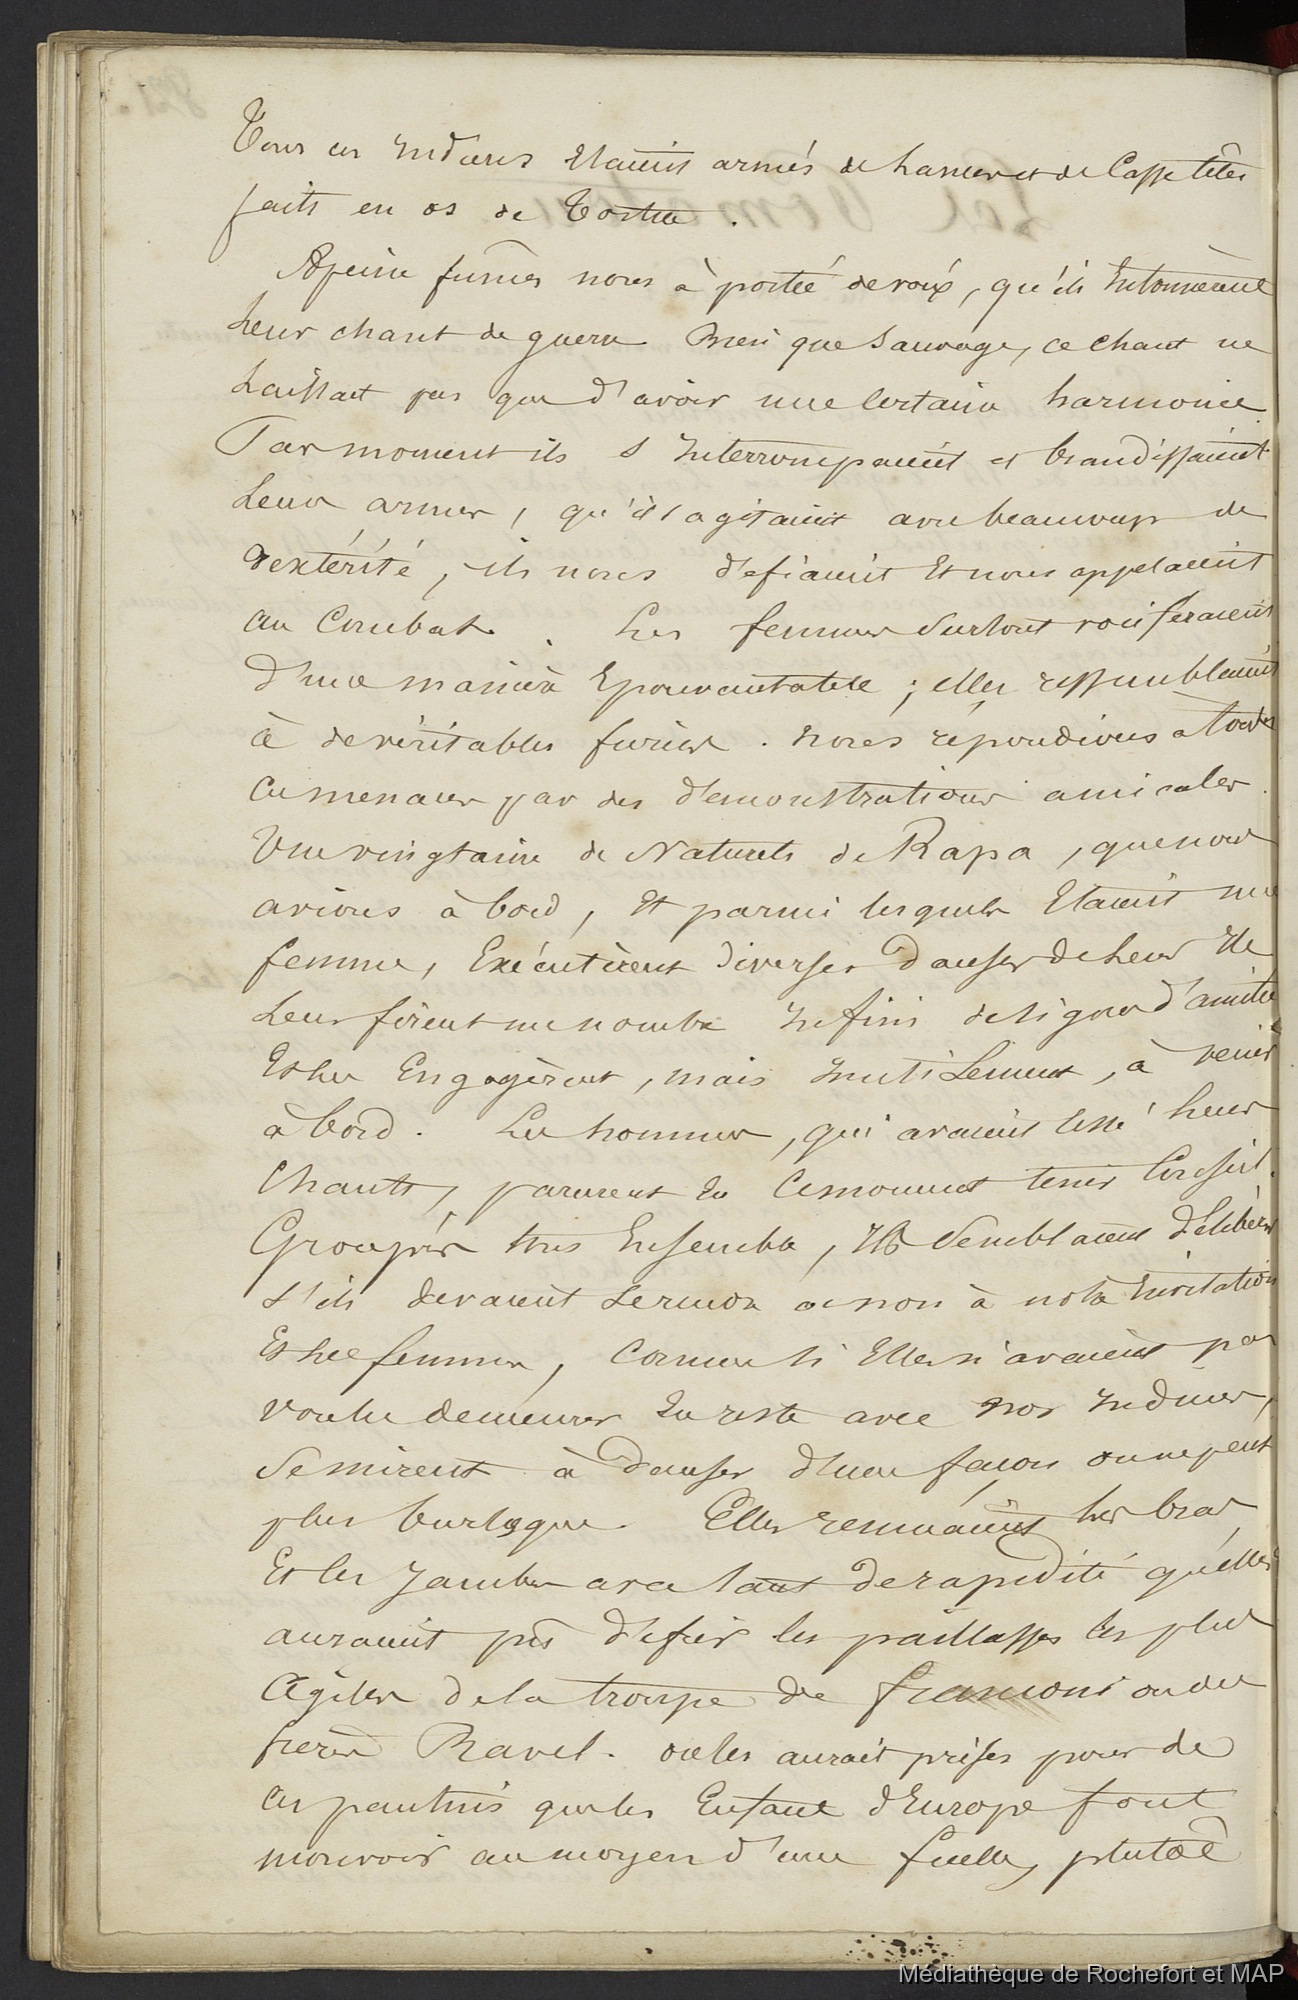 Tous ces Indiens Etaient armés de Lances et de Casse têtes
faits en os de Tortue.
Apeine fumes nous à portée de voix, qu'ils Entonnèrent
Leur chant de guerre Bien que Sauvage, ce chant ne
Laissait pas que d'avoir une certaine harmonie
Par moment ils s'Interrompaient et brandissaient
Leurs armes, qu'ils agitaient avec beaucoup de
dextérité, ils nous défiaient Et nous appelaient
au Combat. Les femmes Surtout vociferaient
d'une manière Epouvantable ; elles ressemblaient
à de véritables furies. Nous répondions à toutes
ces menaces par des démonstrations amicales.
Une vingtaine de Naturels de Rapa, que nous
avions à bord, Et parmi lesquels Etaient une
femme, Exécutèrent diverses danses de Leur Ile
Leur firent un nombre Infini de signes d'amitié
Et les Engagèrent, mais Inutilement, à venir
à bord. Les hommes, qui avaient cessé Leurs
Chants, parurent En Ce moment tenir Conseil.
Groupés tous Ensemble, Ils Semblaient Délibérer
s'ils devaient Se rendre ou non à notre Invitation
Et Les femmes, Comme si Elles n'avaient pas
voulu demeurer En reste avec nos Indiens,
Se mirent à danser d'une façon on ne peut
plus burlesque. Elles remuaient les bras
Et les Jambes avec tant de rapidité qu'elles
auraient pu défier les paillasses les plus
agiles de la troupe de franconi ou des
frères Ravel. on les aurait prises pour de
ces pantins que les Enfants d'Europe font
mouvoir au moyen d'une ficelle, plutôt
Médiathèque de Rochefort et MAP